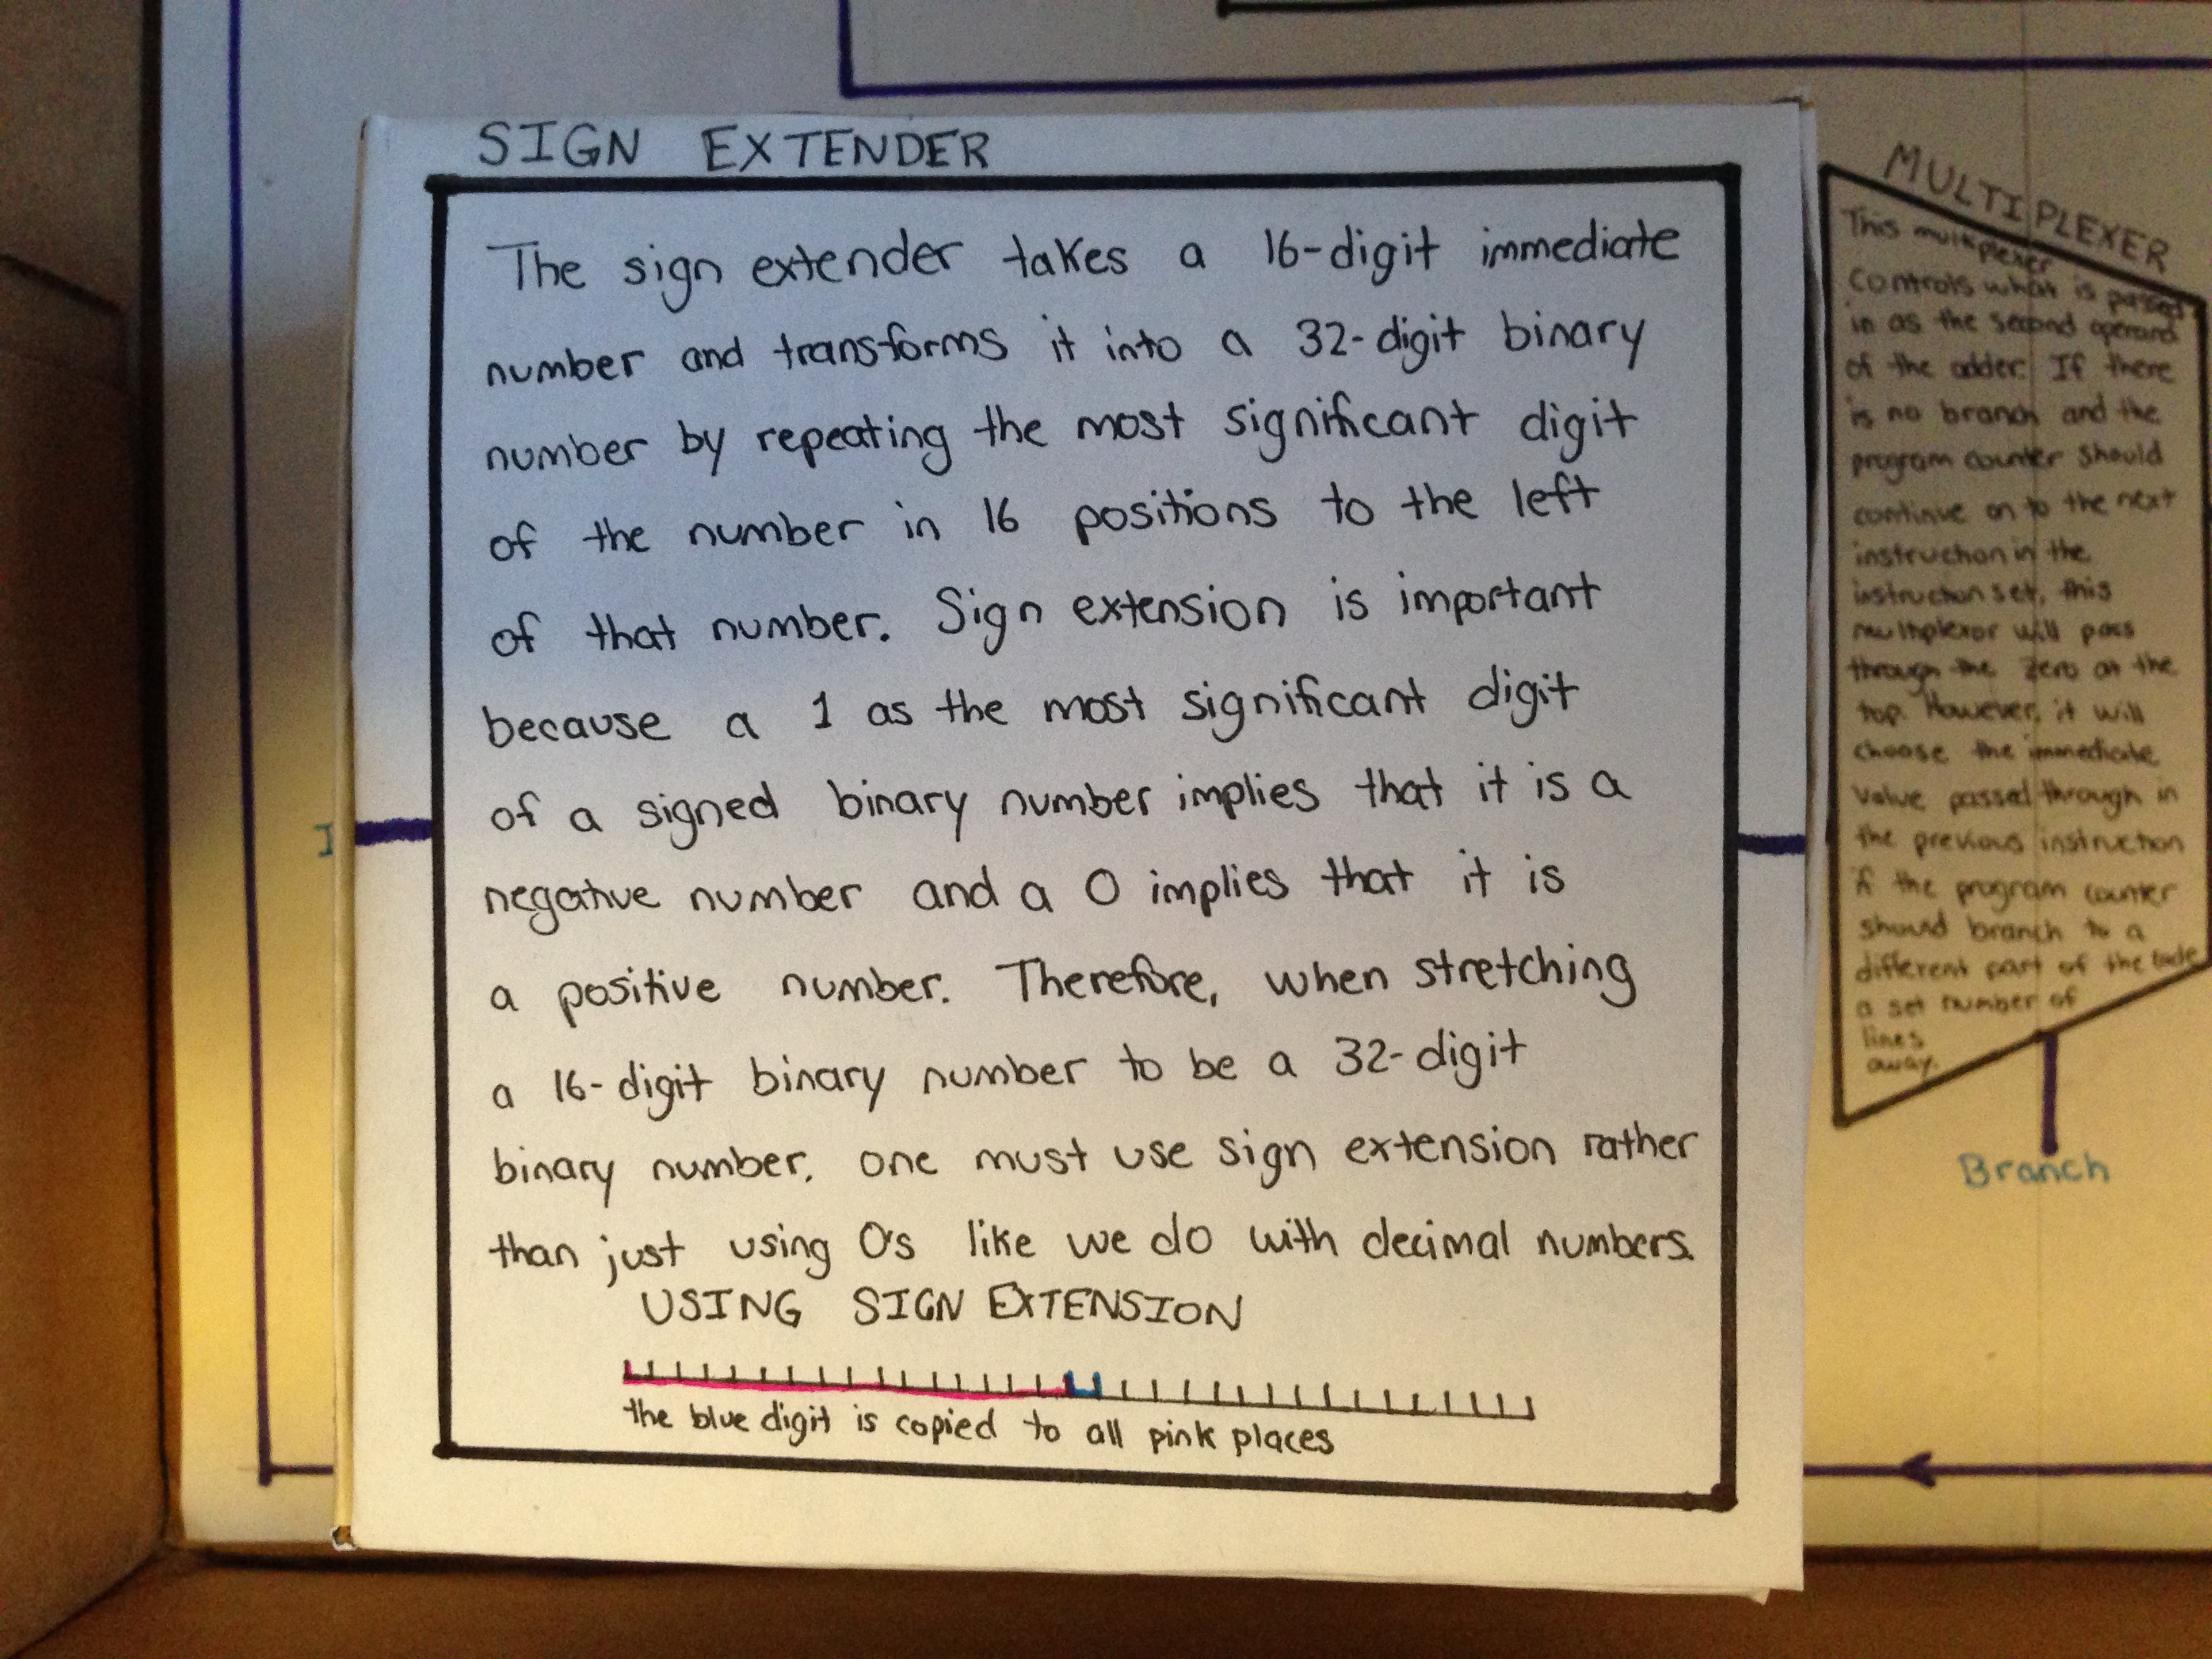 SIGN EXTENDER
The sign extender takes a 16-digit immediate
number and transforms it into a 32-digit binary
number by repeating the most significant digit
of the number in 16 positions to the left
of that number. Sign extension is important
because a 1 as the most significant digit
of a signed binary number implies that it is a
negative number and a 0 implies that it is
a positive number. Therefore, when stretching
a 16-digit binary number to be a 32-digit
binary number, one must use sign extension rather
than just using 0's like we do with decimal numbers.
USING SIGN EXTENSION
the blue digit is copied to all pink places
I
MULTIPLEXER
This multiplexer
controls what is passed
in as the second operand
of the adder. If there
is no branch and the
program counter should
continue on to the next
instruction in the
instruction set, this
multiplexor will pass
through the zero at the
top. However, it will
choose the immediate
value passed through in
the previous instruction
if the program counter
should branch to a
different part of the code
a set number of
lines
away.
Branch